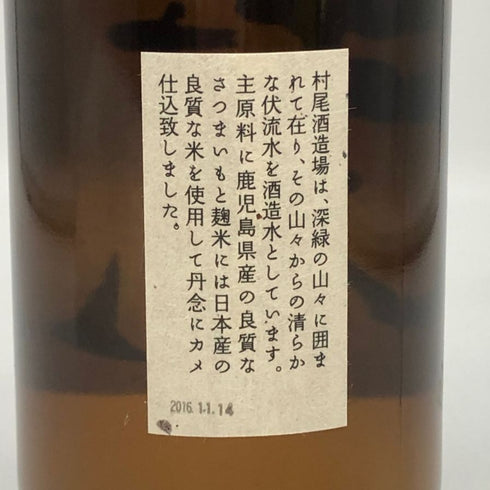 村尾酒造場は、深緑の山々に囲ま
れて在り、その山々からの清らか
な伏流水を酒造水としています。
主原料に鹿児島県産の良質な
さつまいもと麹米には日本産の
良質な米を使用して丹念にカメ
仕込致しました。
2016.11.14